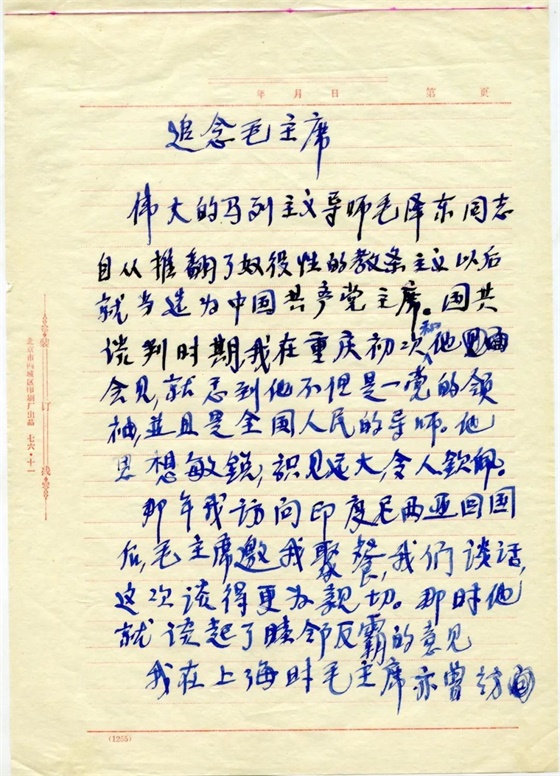 年 月 日 第 页
追念毛主席
伟大的马列主义导师毛泽东同志
自从推翻了奴役性的教条主义以后
就当选为中国共产党主席。国共
谈判时期我在重庆初次和他
会见,就感到他不但是一党的领
袖,并且是全国人民的导师。他
思想敏锐,识见远大,令人钦佩。
那年我访问印度尼西亚回国
后,毛主席邀我聚餐,我们谈话,
这次谈得更为亲切。那时他
就谈起了睦邻反霸的意见
我在上海时毛主席亦曾访
装 订 线
北京市西城区印刷厂出品 七六·十一
(1255)